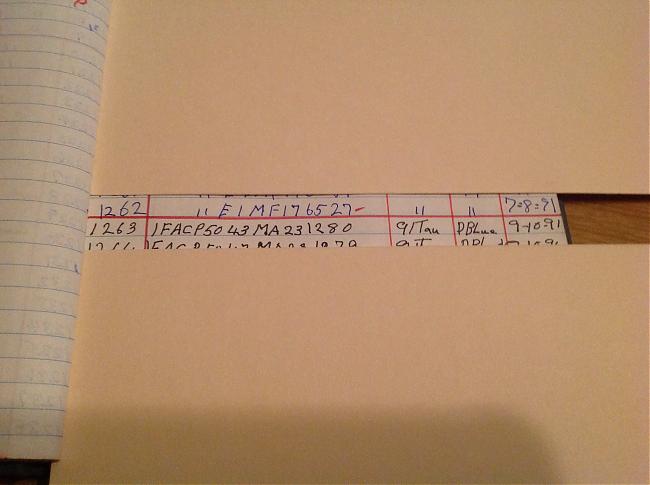 1262 " E1MF176527- " " 7=8=91
1263 1FACP5043MA231280 91Tau DBLue 9-10-91